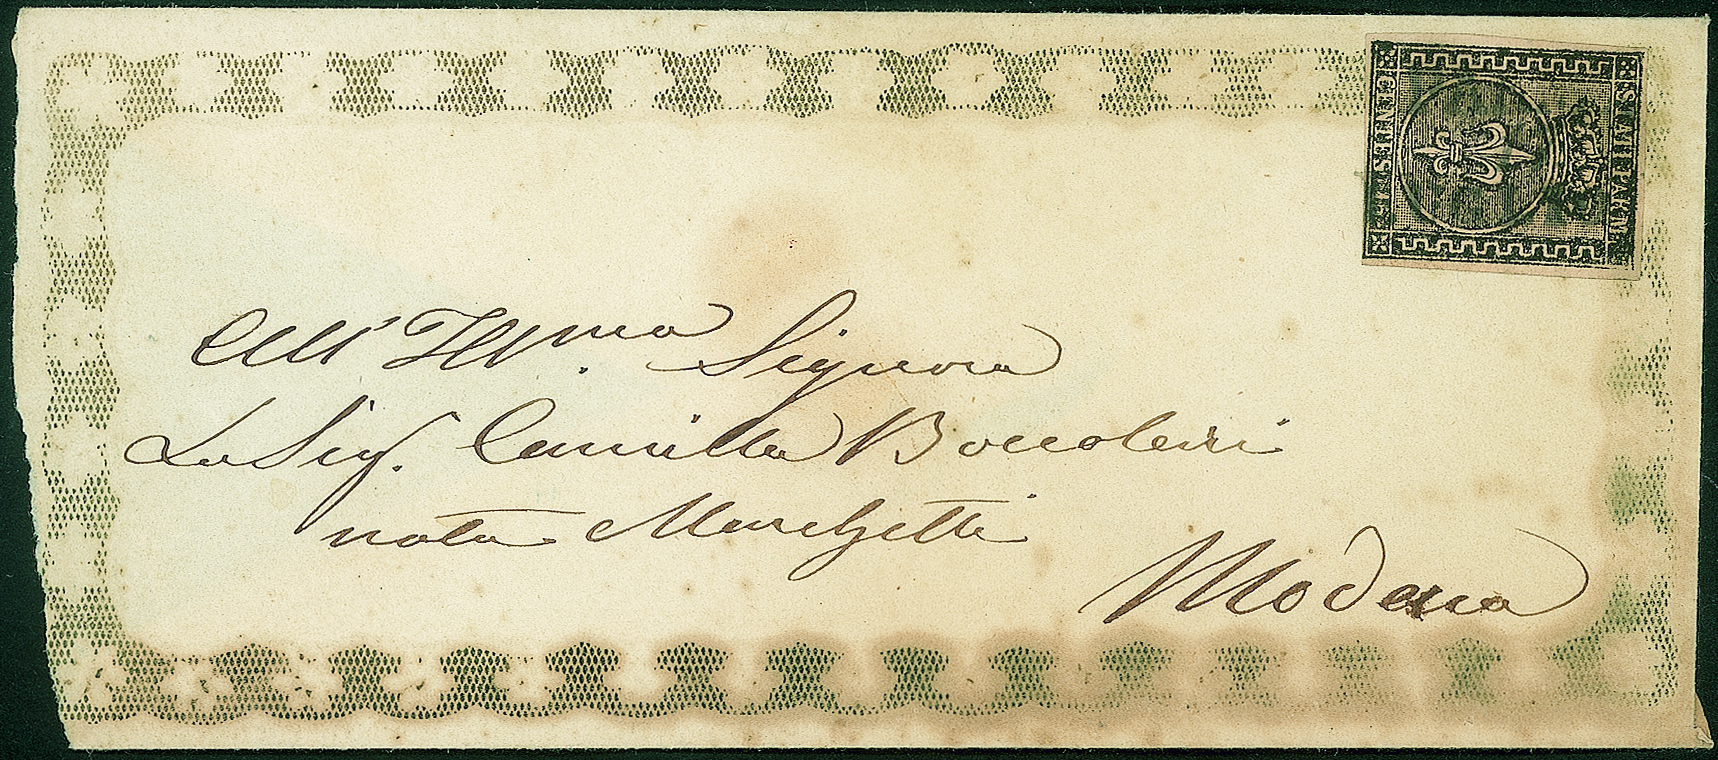 All' Ill.ma Signora
La Sig. Camilla Boccolari
nata Marchetti
Modena
STATI PARM
CENTES. 15